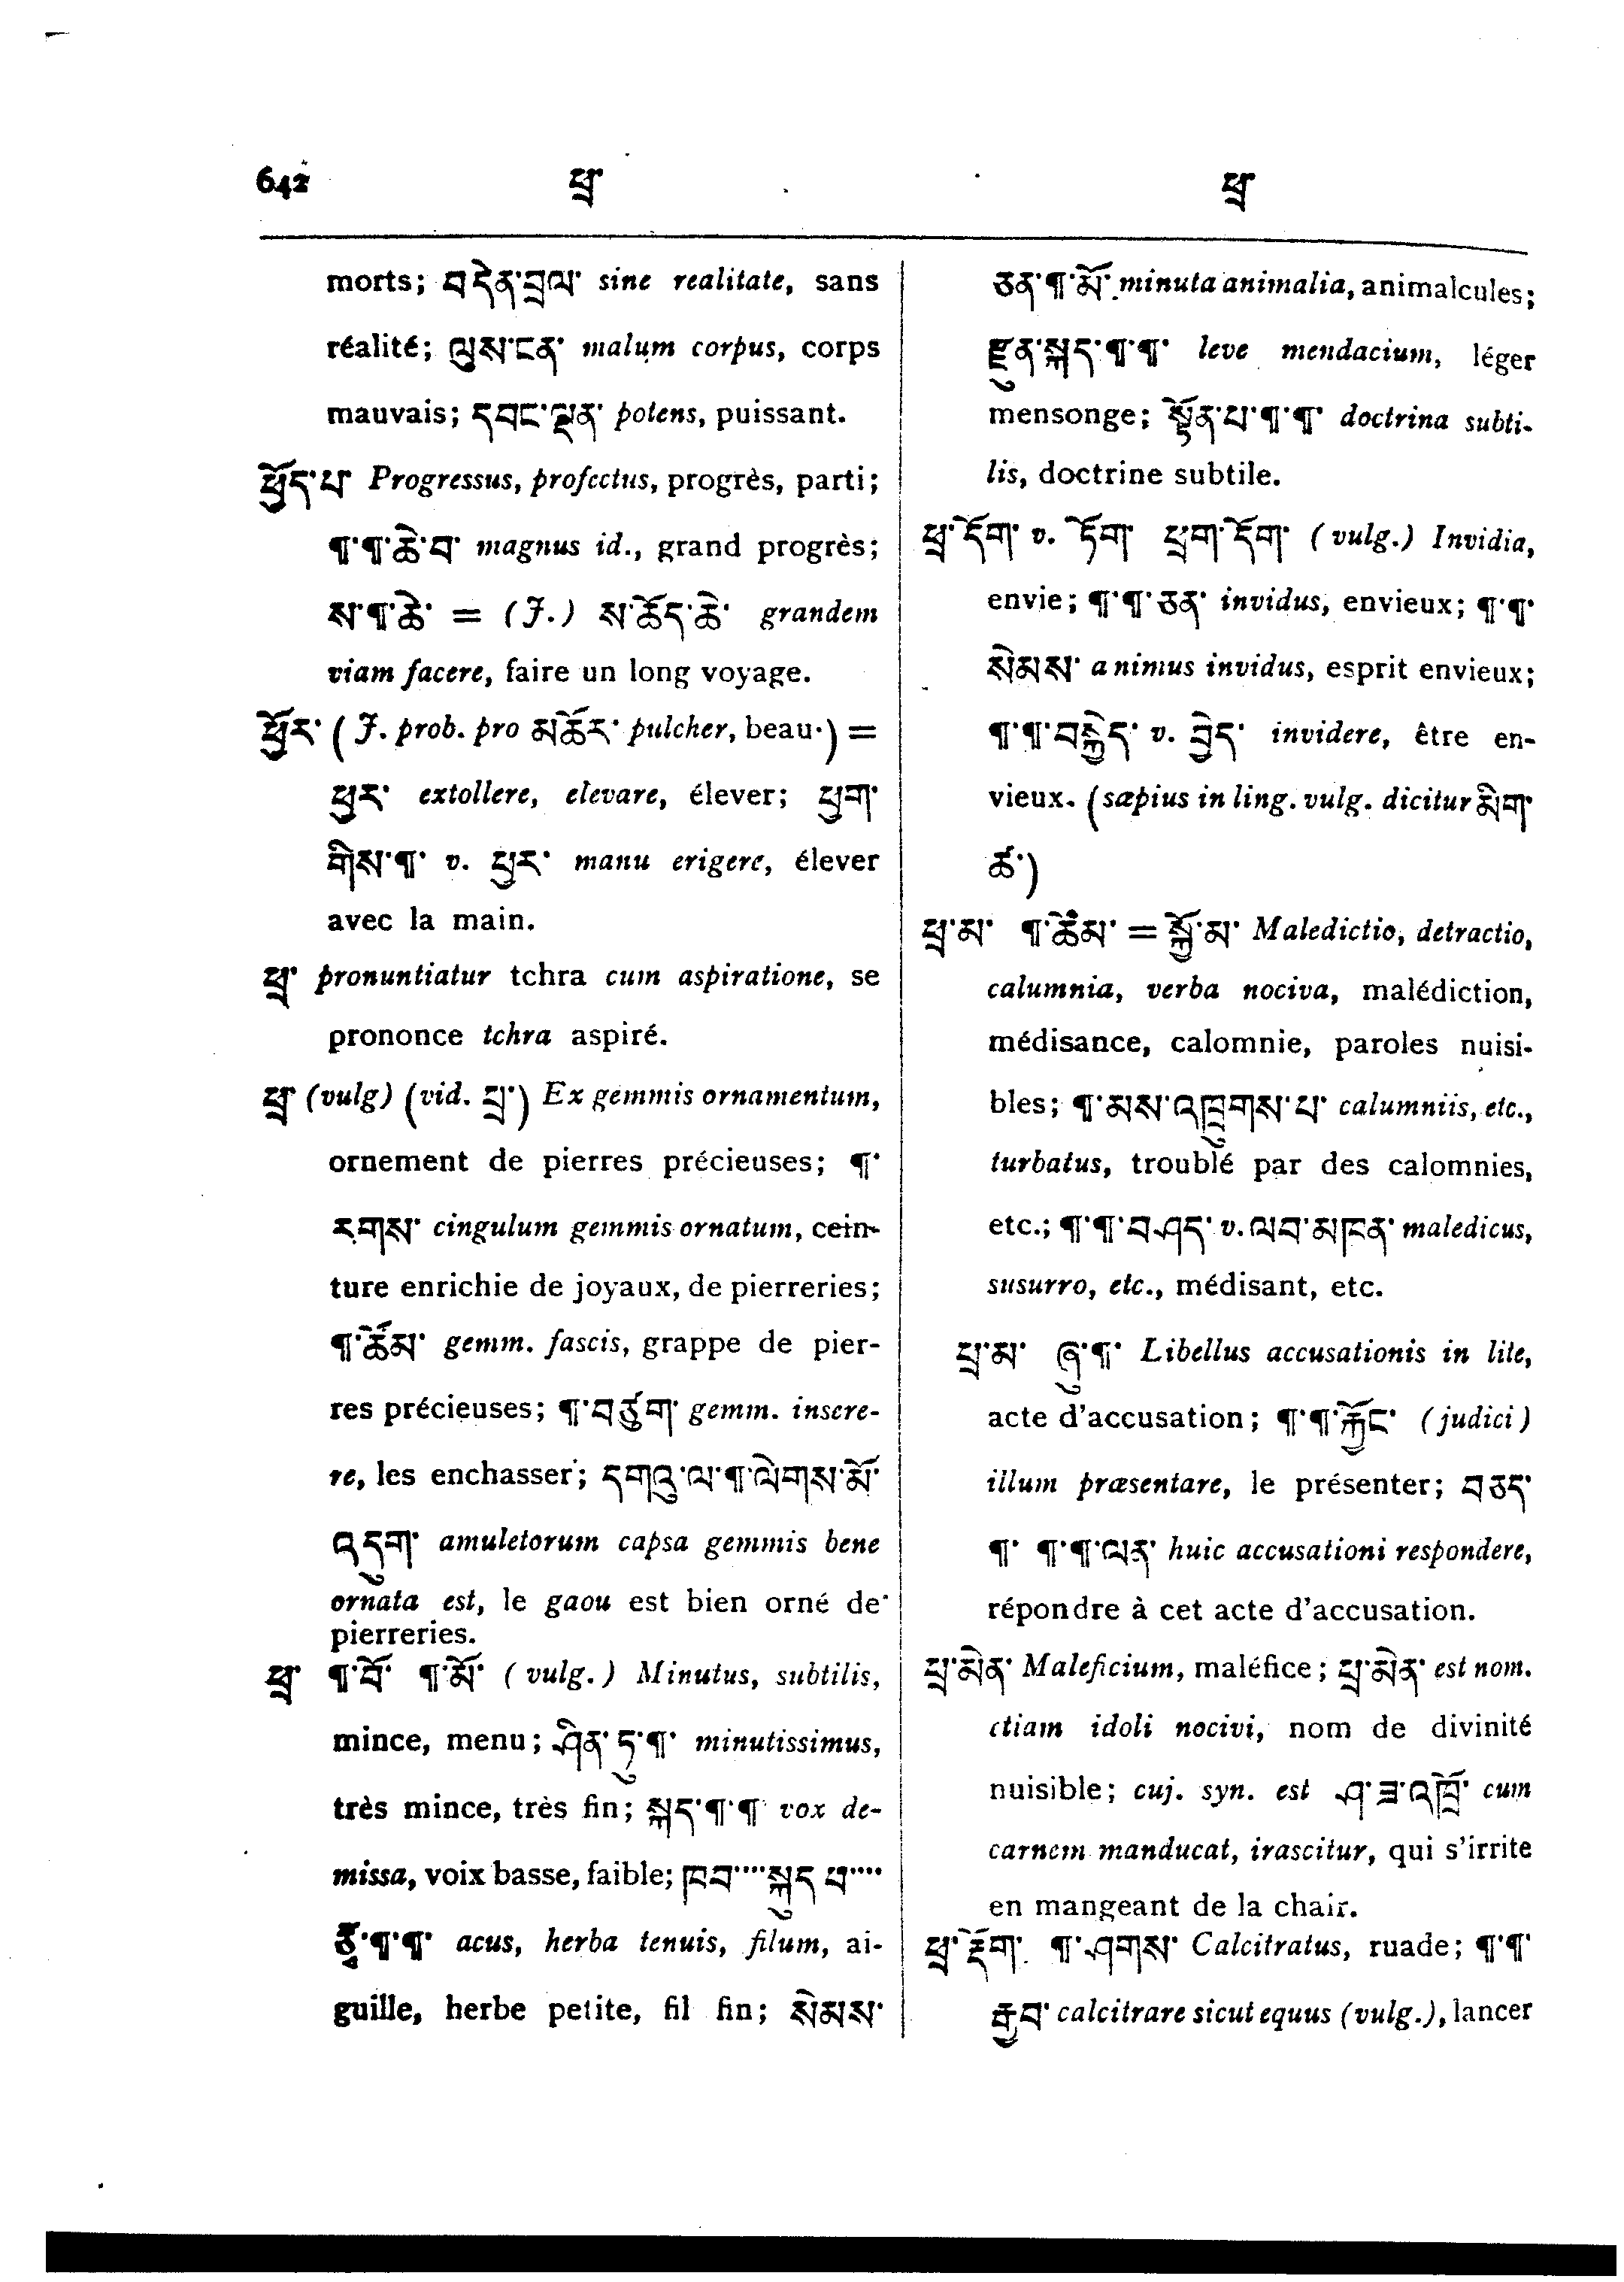 642 ཕྲ་ ཕྲ་
morts; བདེན་བྲལ་ sine realitate, sans
réalité; ལུས་ངན་ malum corpus, corps
mauvais; དབང་ལྡན་ potens, puissant.
ཕྱོད་པ་ Progressus, profectus, progrès, parti;
¶་¶་ཆེ་བ་ magnus id., grand progrès;
ས་¶་ཆེ་ = (J.) ས་ཆོད་ཆེ་ grandem
viam facere, faire un long voyage.
ཕྱོར་ (J. prob. pro མཆོར་ pulcher, beau.) =
ཕྱར་ extollere, elevare, élever; ཕྱག་
གིས་¶་ v. ཕྱར་ manu erigere, élever
avec la main.
ཕྲ་ pronuntiatur tchra cum aspiratione, se
prononce tchra aspiré.
ཕྲ་ (vulg) (vid. པྲ་) Ex gemmis ornamentum,
ornement de pierres précieuses; ¶་
རགས་ cingulum gemmis ornatum, cein-
ture enrichie de joyaux, de pierreries;
¶་ཚོམ་ gemm. fascis, grappe de pier-
res précieuses; ¶་བཙུག་ gemm. insere-
re, les enchasser; དགའུ་ལ་¶་ལེགས་མོ་
འདུག་ amuletorum capsa gemmis bene
ornata est, le gaou est bien orné de
pierreries.
ཕྲ་ ¶་བོ་ ¶་མོ་ (vulg.) Minutus, subtilis,
mince, menu; ཤིན་ཏུ་¶་ minutissimus,
très mince, très fin; སྐད་¶་¶་ vox de-
missa, voix basse, faible; ཁབ་···· སྐུད་པ་····
རྩྭ་¶་¶་ acus, herba tenuis, filum, ai-
guille, herbe petite, fil fin; སེམས་
ཅན་¶་མོ་ minuta animalia, animalcules;
རྫུན་སྐད་¶་¶་ leve mendacium, léger
mensonge; སྟོན་པ་¶་¶་ doctrina subti-
lis, doctrine subtile.
ཕྲ་དོག་ v. ཏོག་ ཕྲག་དོག་ (vulg.) Invidia,
envie; ¶་¶་ཅན་ invidus, envieux; ¶་¶་
སེམས་ animus invidus, esprit envieux;
¶་¶་བསྐྱེད་ v. བྱེད་ invidere, être en-
vieux. (sæpius in ling. vulg. dicitur མིག་
ཚ་)
ཕྲ་མ་ ¶་ཚིམ་ = སྐྱོ་མ་ Maledictio, detractio,
calumnia, verba nociva, malédiction,
médisance, calomnie, paroles nuisi-
bles; ¶་མས་འཁྲུགས་པ་ calumniis, etc.,
turbatus, troublé par des calomnies,
etc.; ¶་¶་བཤད་ v. ལབ་མཁན་ maledicus,
susurro, etc., médisant, etc.
ཕྲ་མ་ ཞུ་¶་ Libellus accusationis in lite,
acte d'accusation; ¶་¶་རྐྱོང་ (judici)
illum præsentare, le présenter; བཅད་
¶་ ¶་¶་ལན་ huic accusationi respondere,
répondre à cet acte d'accusation.
ཕྲ་མེན་ Maleficium, maléfice; ཕྲ་མེན་ est nom.
etiam idoli nocivi, nom de divinité
nuisible; cuj. syn. est ཤ་ཟ་འཁྲོ་ cum
carnem manducat, irascitur, qui s'irrite
en mangeant de la chair.
ཕྲ་རྡོག་ ¶་ཤགས་ Calcitratus, ruade; ¶་¶་
རྒྱབ་ calcitrare sicut equus (vulg.), lancer